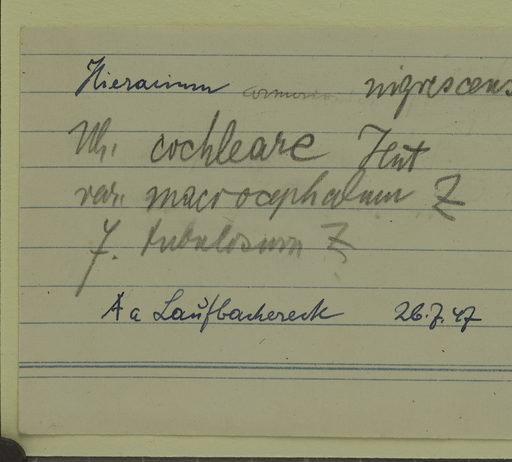 Hieracium nigrescens
cochleare Hut
var. macrocephalum Z
f. tubulosum Z
A a Laufbachereck 26.7.47